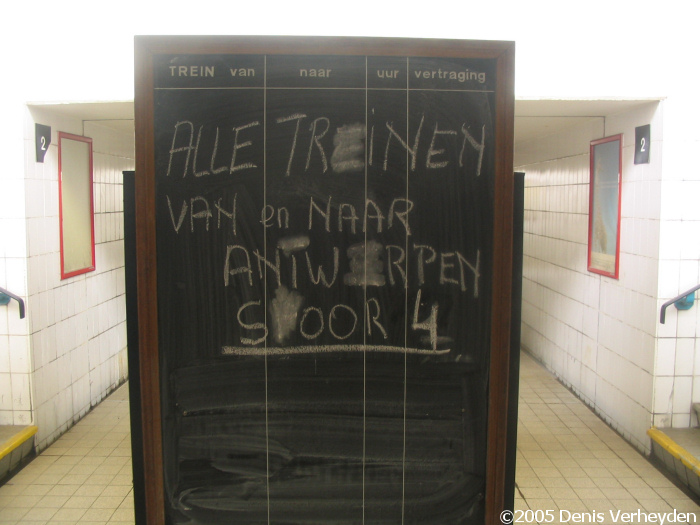 TREIN van naar uur vertraging
2
2
ALLE TREINEN
VAN en NAAR
ANTWERPEN
SPOOR 4
©2005 Denis Verheyden